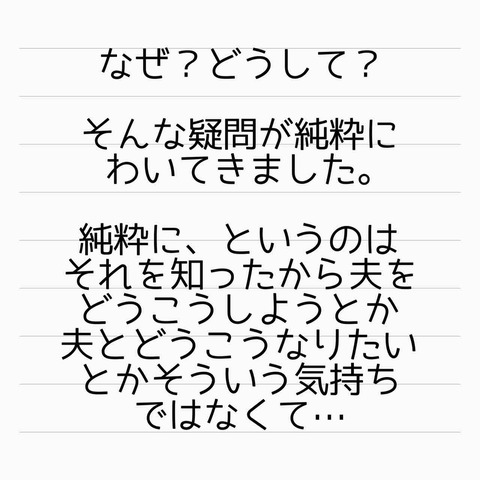 なぜ？どうして？
そんな疑問が純粋に
わいてきました。
純粋に、というのは
それを知ったから夫を
どうこうしようとか
夫とどうこうなりたい
とかそういう気持ち
ではなくて…